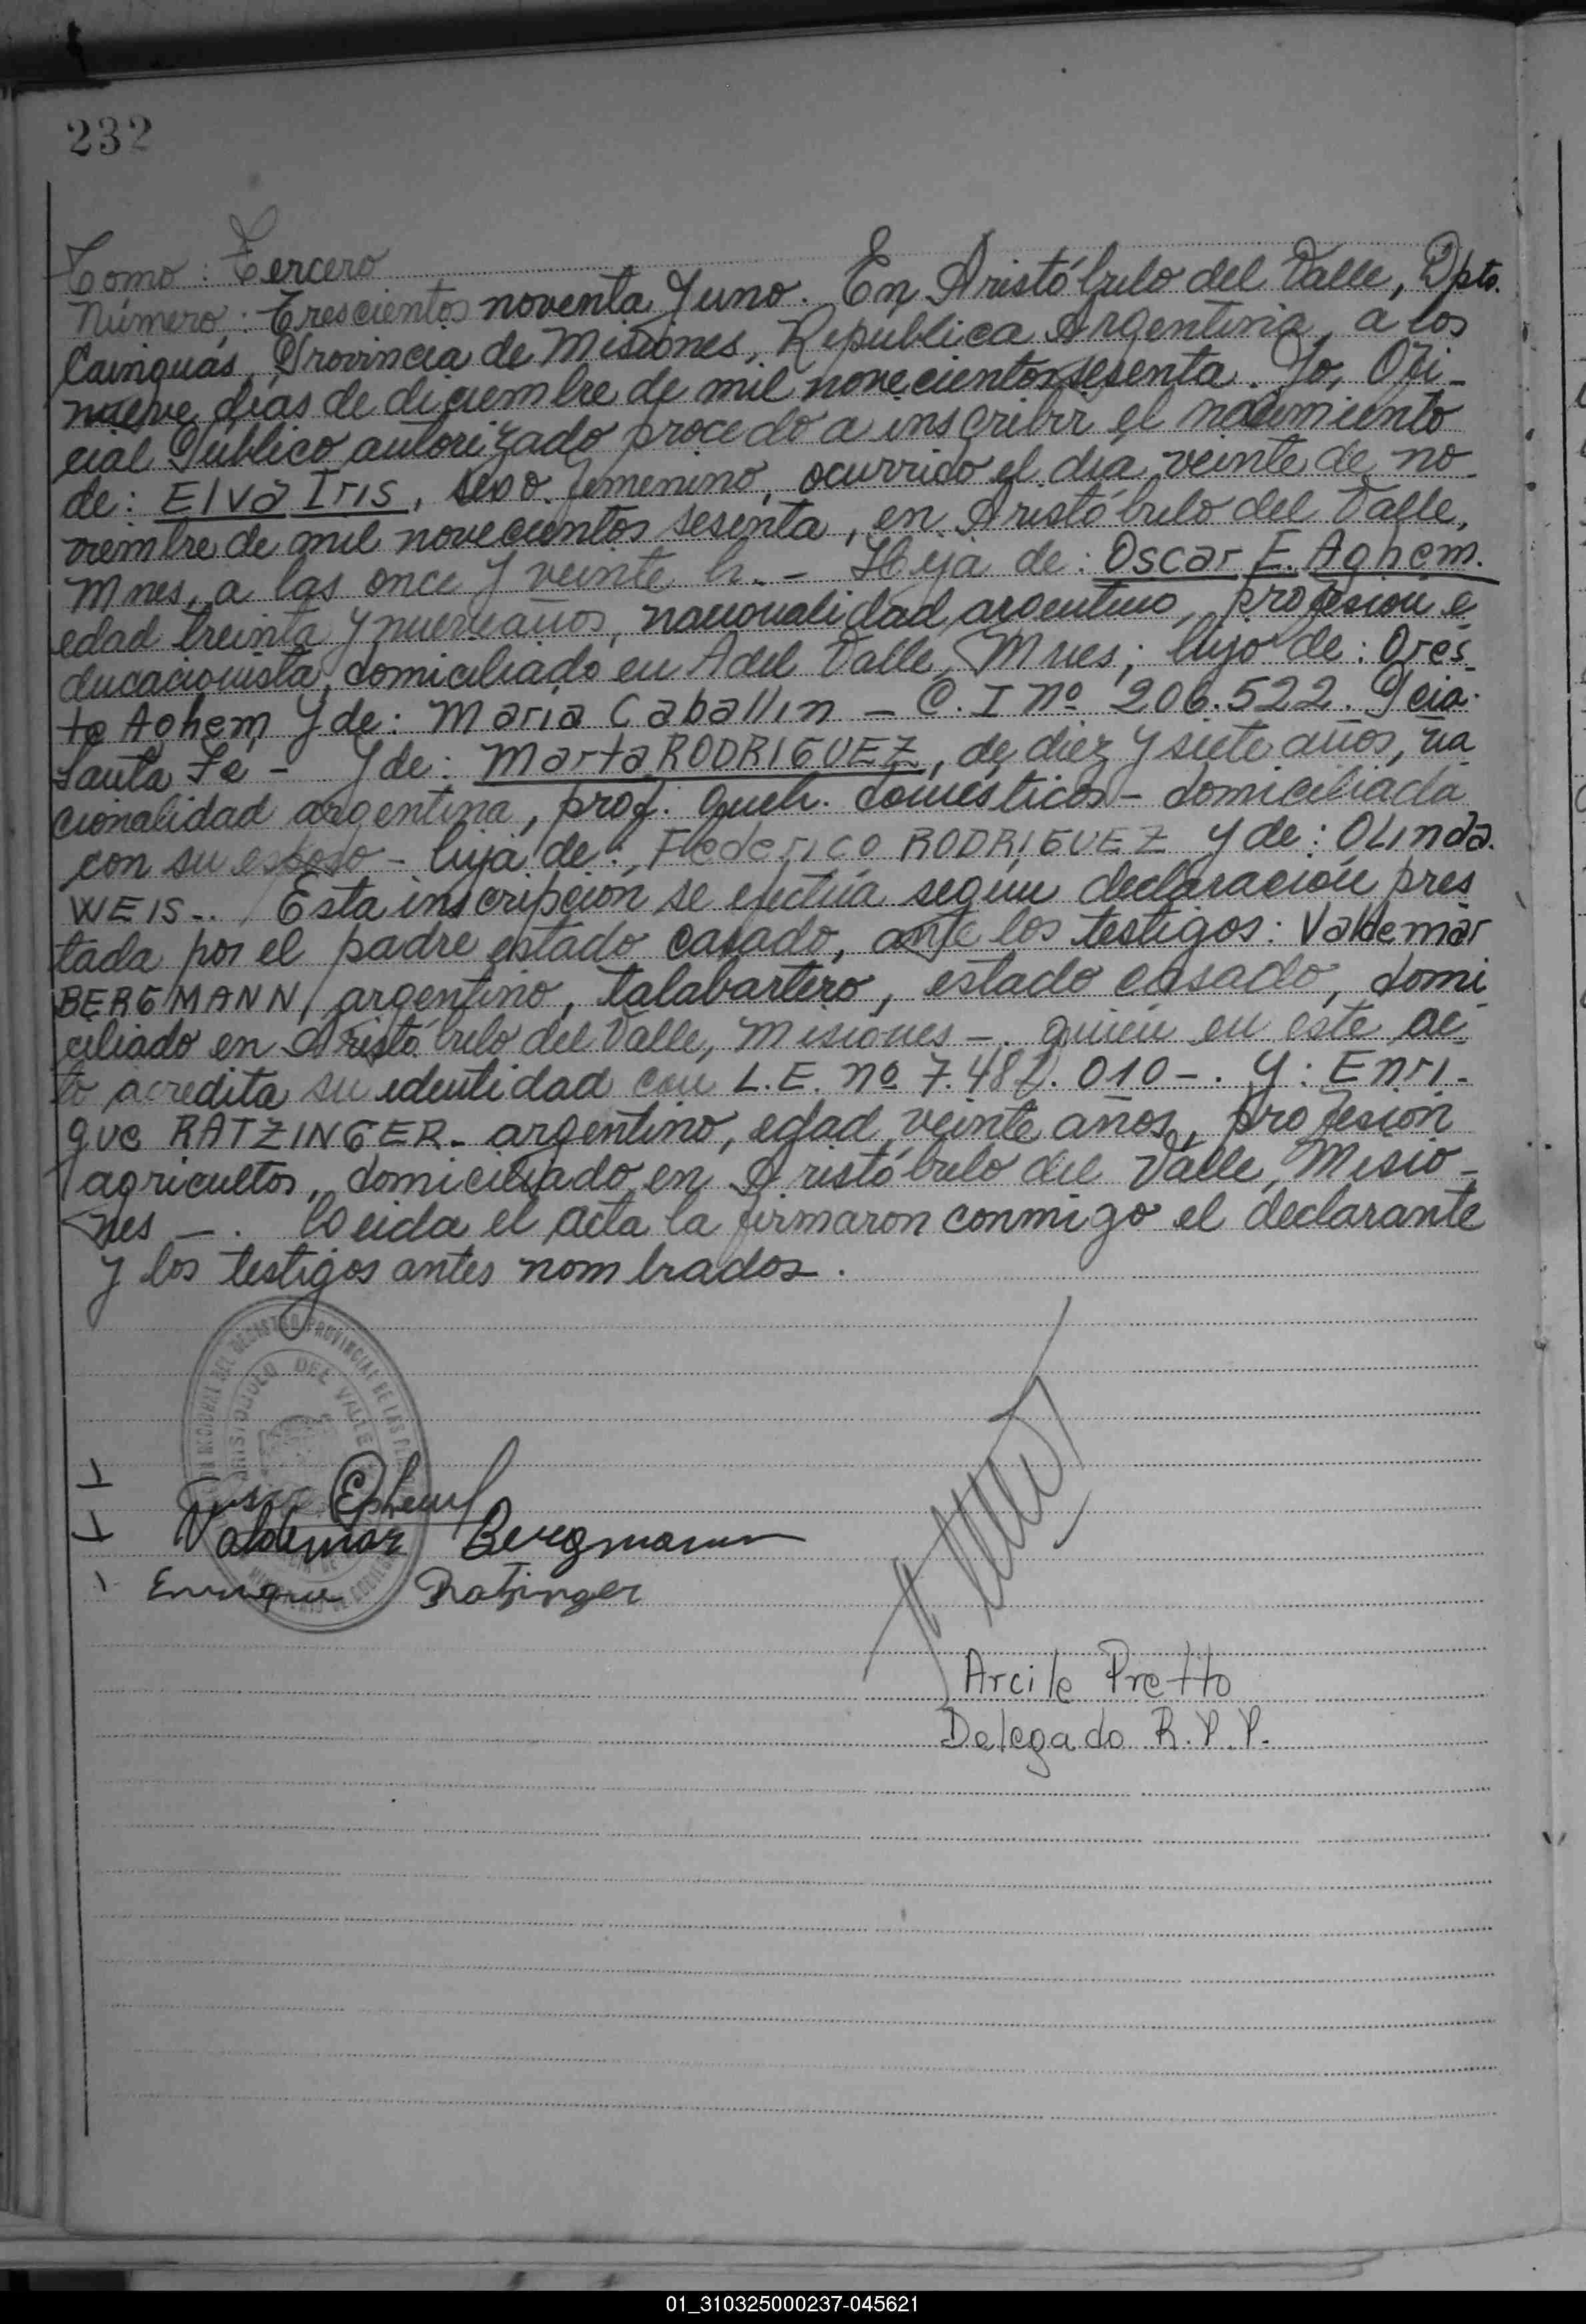 232
Tomo: Tercero
Número: Trescientos noventa y uno. En Aristóbulo del Valle, Dpto.
Cainguás, Provincia de Misiones, República Argentina, a los
nueve días de diciembre de mil novecientos sesenta. Yo, Ofi-
cial Público autorizado procedo a inscribir el nacimiento
de: Elva Iris, sexo femenino, ocurrido el día veinte de no-
viembre de mil novecientos sesenta, en Aristóbulo del Valle,
Mnes, a las once y veinte h. - Hija de: Oscar E. Aghem.
edad treinta y nueve años, nacionalidad argentino, profesión e
ducacionista, domiciliado en A del Valle, Mnes; hijo de: Ores-
te Aghem y de: Maria Caballin - C. I nº 206.522. Pcia.
Santa Fe - y de: Marta RODRIGUEZ, de diez y siete años, na
cionalidad argentina, prof. queh. domésticos - domiciliada
con su esposo - hija de: Federico RODRIGUEZ y de: OLINda
WEIS-. Esta inscripción se efectúa según declaración pres
tada por el padre estado casado, ante los testigos: Valdemar
BERGMANN, argentino, talabartero, estado casado, domi
ciliado en Aristóbulo del Valle, Misiones -. quien en este ac
to acredita su identidad con L.E. nº 7.482.010-. y: Enri-
que RATZINGER- argentino, edad veinte años, profesión
agricultor, domiciliado en Aristóbulo del Valle, Misio-
nes -. Leida el acta la firmaron conmigo el declarante
y los testigos antes nombrados.
ARISTOBULO DEL VALLE
Valdemar Bergmann
Enrique Ratzinger
Arcile Pretto
Delegado R.P.P.
01_310325000237-045621